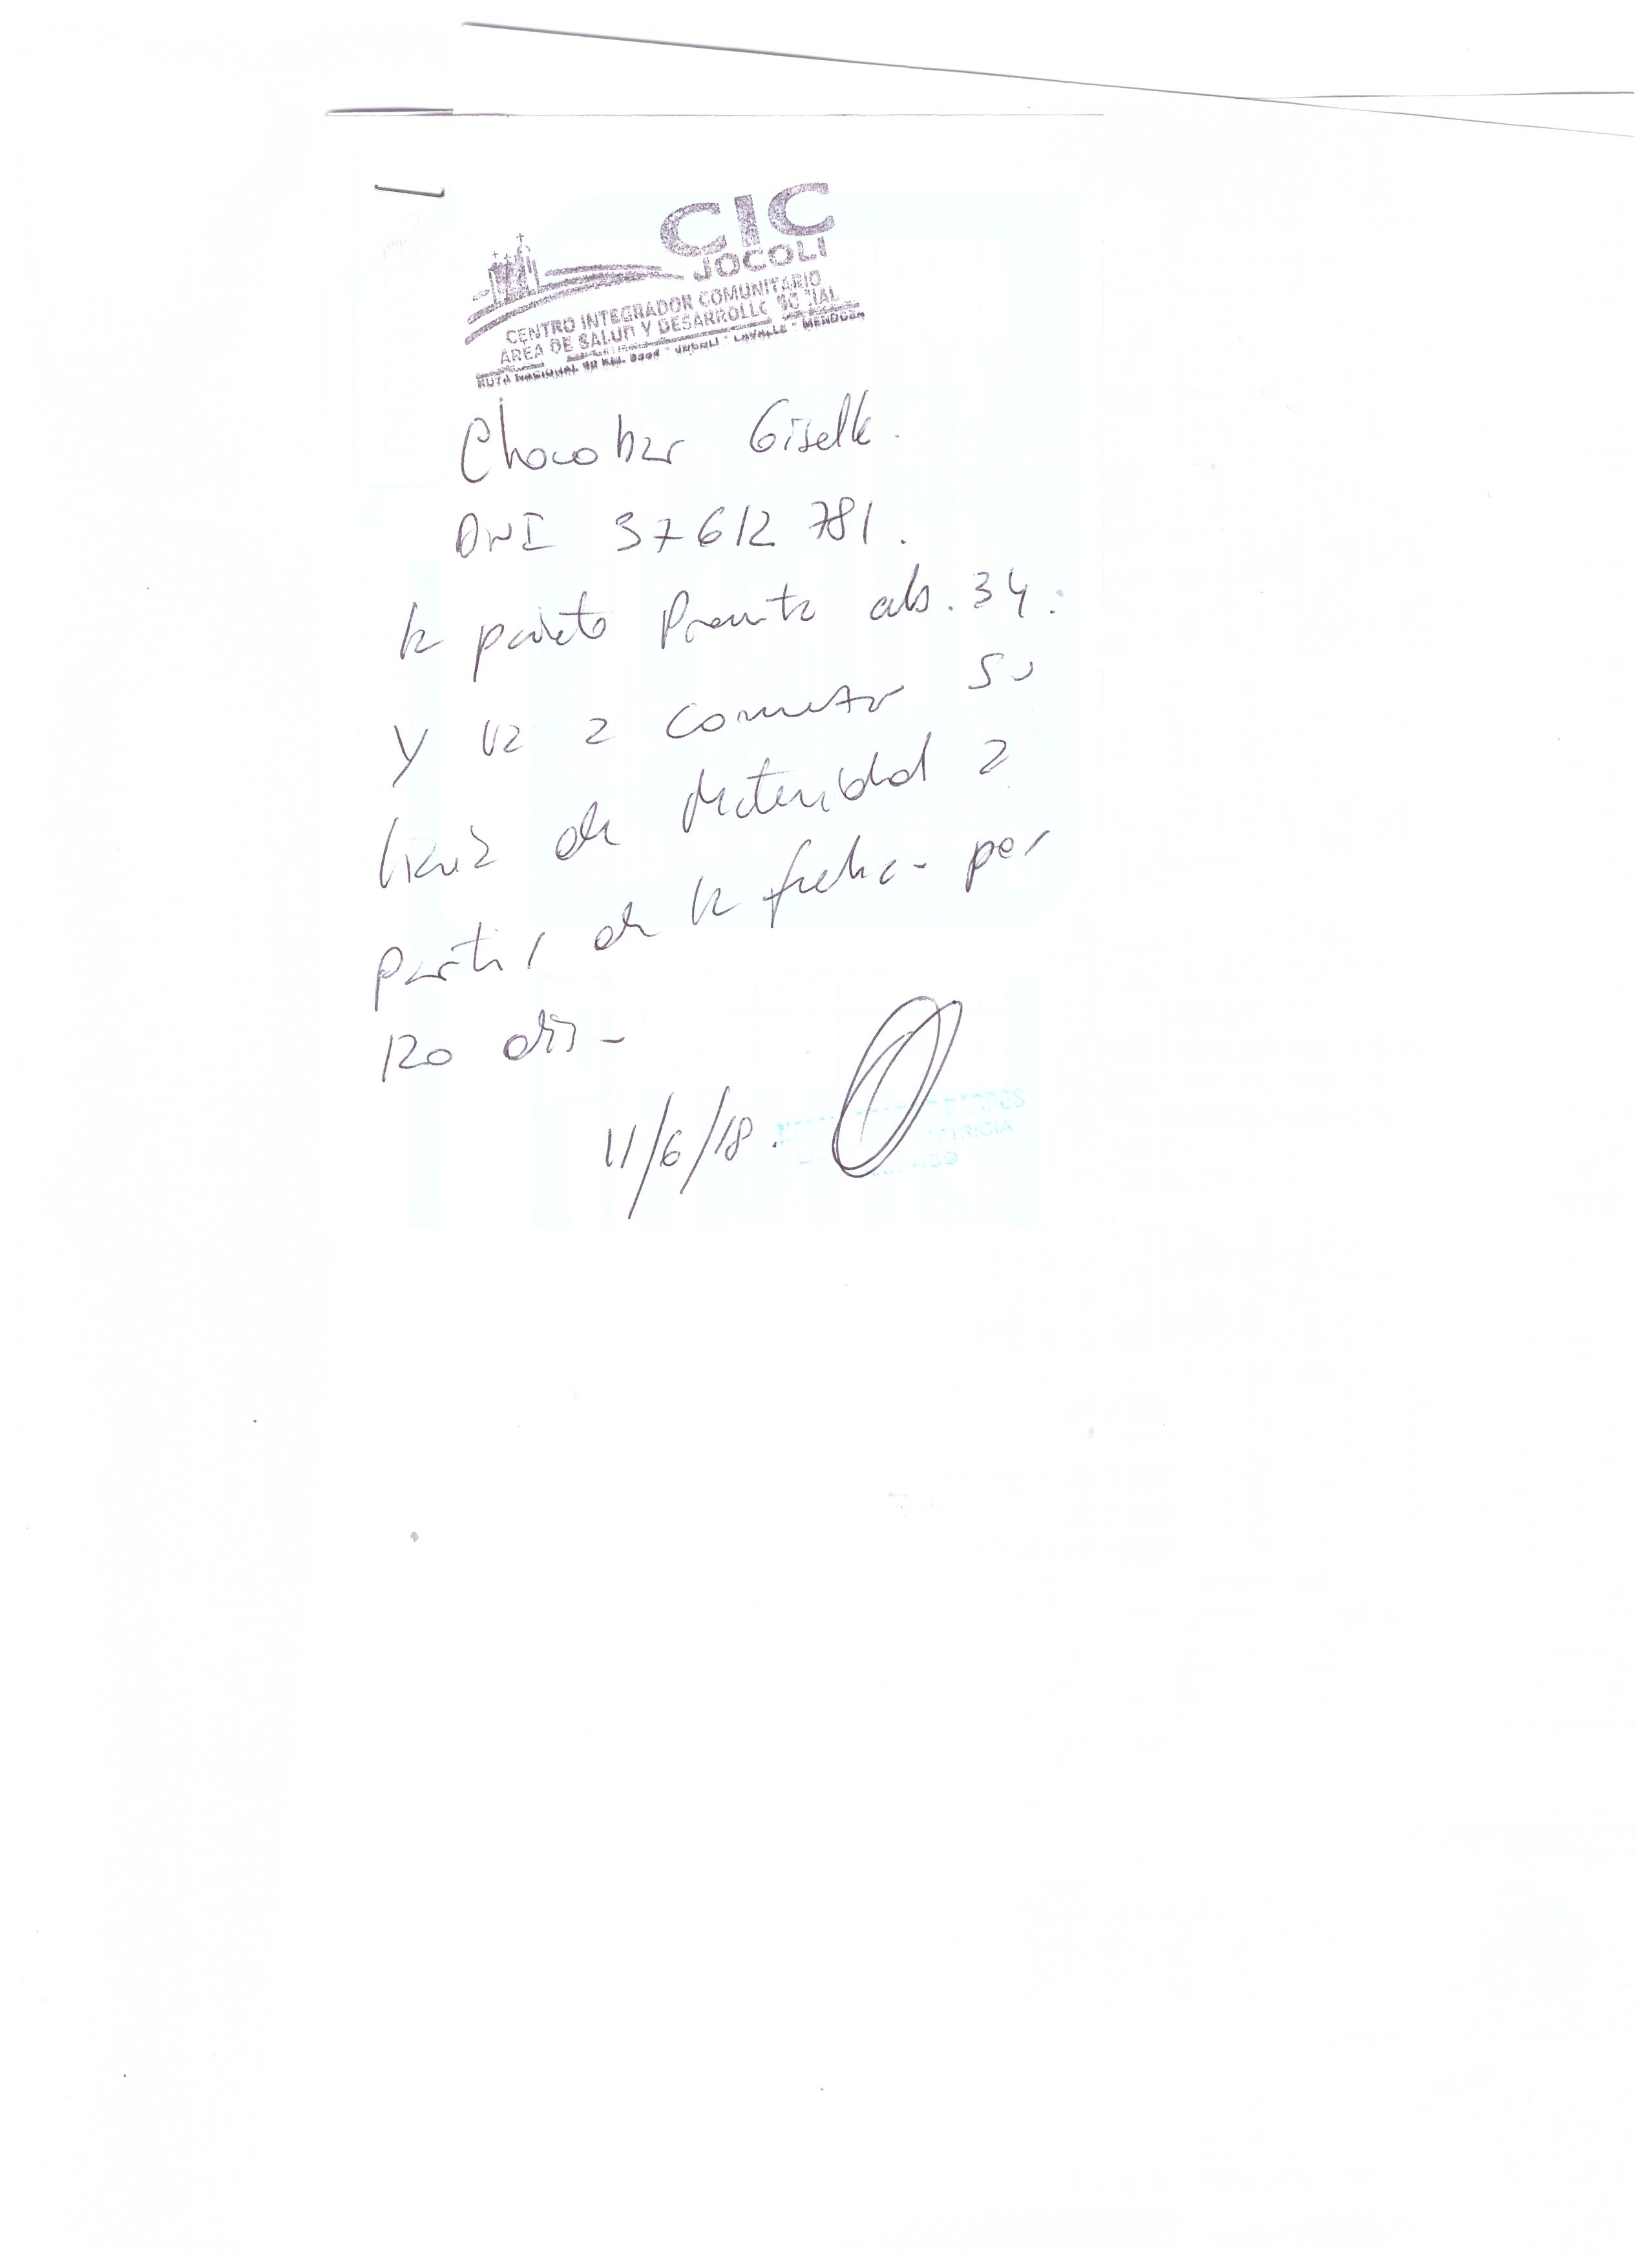 CIC
JOCOLI
CENTRO INTEGRADOR COMUNITARIO
AREA DE SALUD Y DESARROLLO SOCIAL
RUTA NACIONAL 40 KM. - JOCOLI - LAVALLE - MENDOZA
Chocobar Giselle.
DNI 37612781.
la paciente Presenta 34.
y va a comenzar su
licencia de Maternidad a
partir de la fecha - por
120 días -
11/6/18.